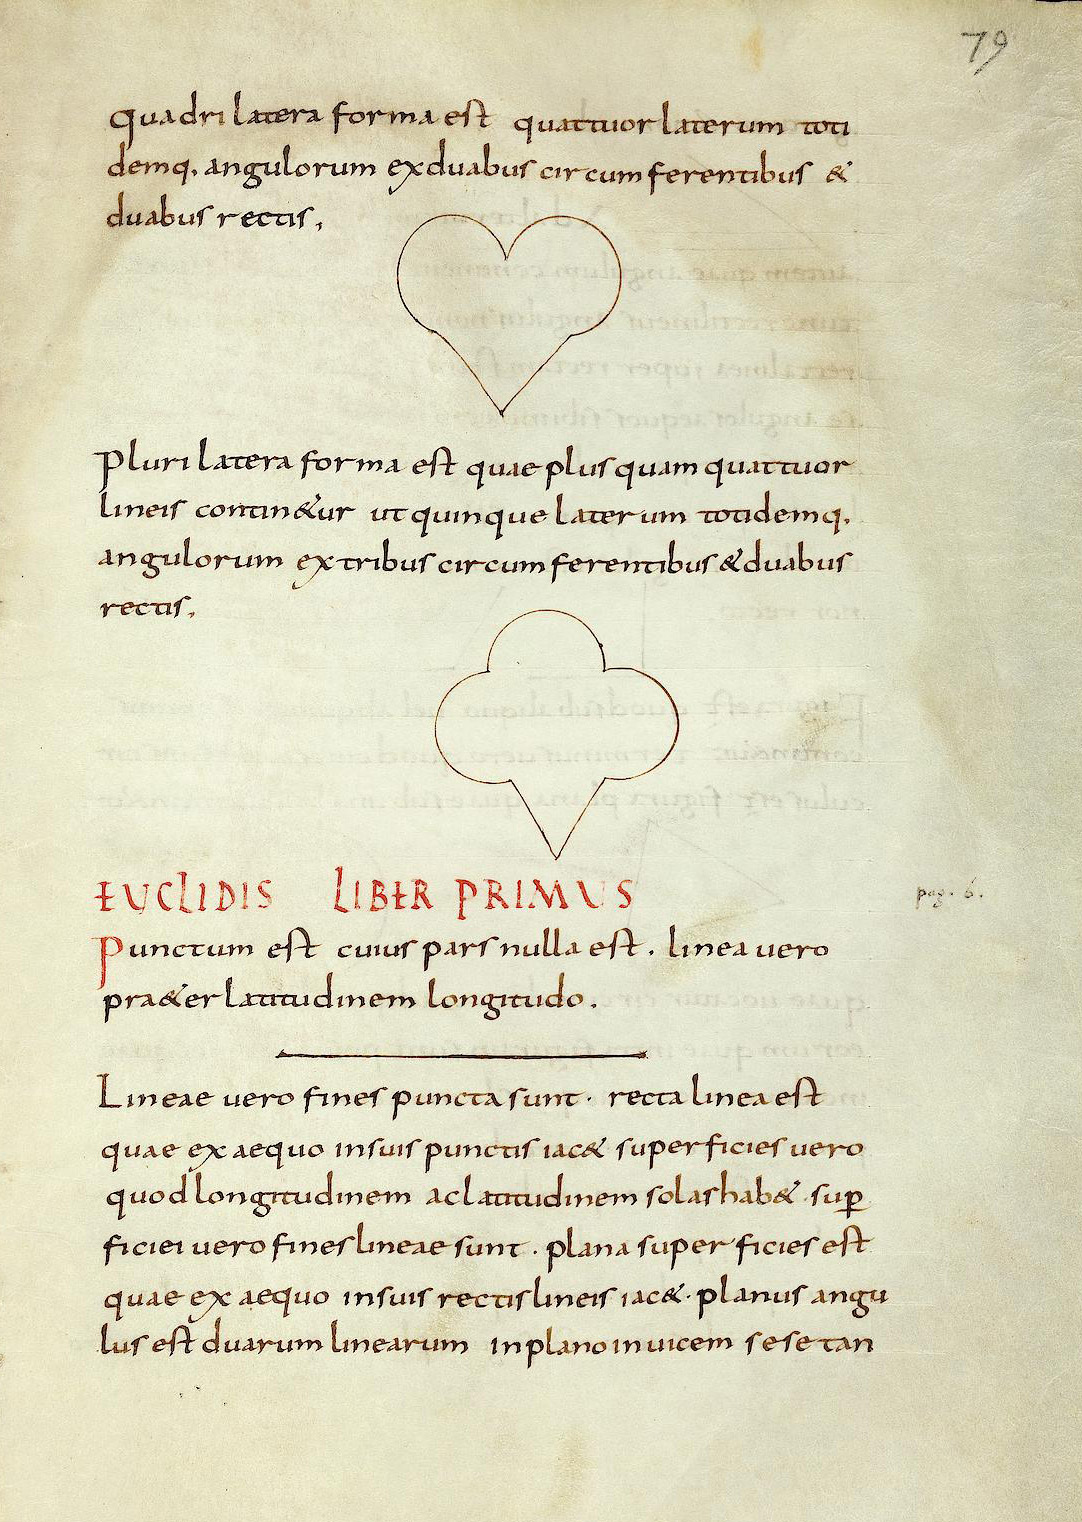 79
Quadrilatera forma est quattuor laterum toti
demq. angulorum ex duabus circumferentibus &
duabus rectis,
Plurilatera forma est quae plus quam quattuor
lineis contin&ur ut quinque laterum totidemq.
angulorum ex tribus circumferentibus & duabus
rectis.
EUCLIDIS LIBER PRIMUS
pag. 6.
Punctum est cuius pars nulla est. linea vero
pra&er latitudinem longitudo.
Lineae vero fines puncta sunt. recta linea est
quae ex aequo insuis punctis iac& superficies vero
quod longitudinem ac latitudinem solas hab& sup
ficiei vero fines lineae sunt. plana superficies est
quae ex aequo insuis rectis lineis iac&. planus angu
lus est duarum linearum in plano invicem sese tan